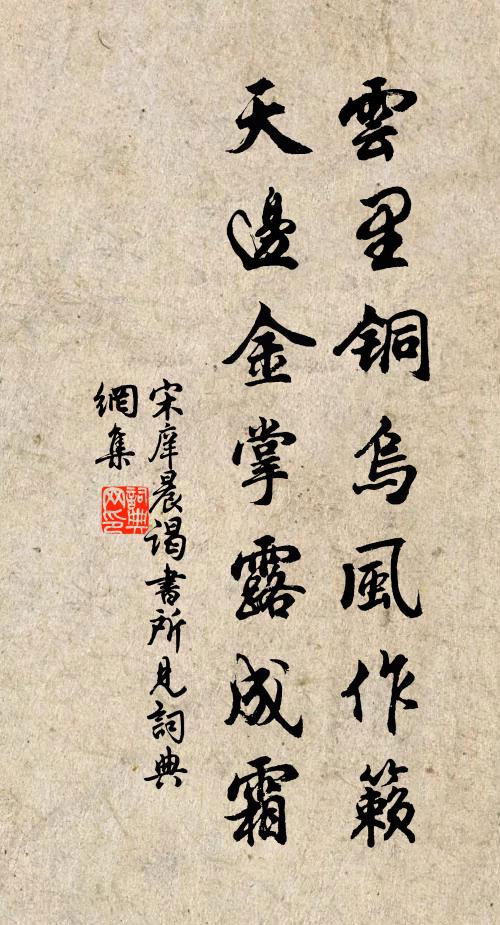 雲里铜烏風作籟
天邊金掌露成霜
宋庠晨谒書所見詞典
網集
詞典网印